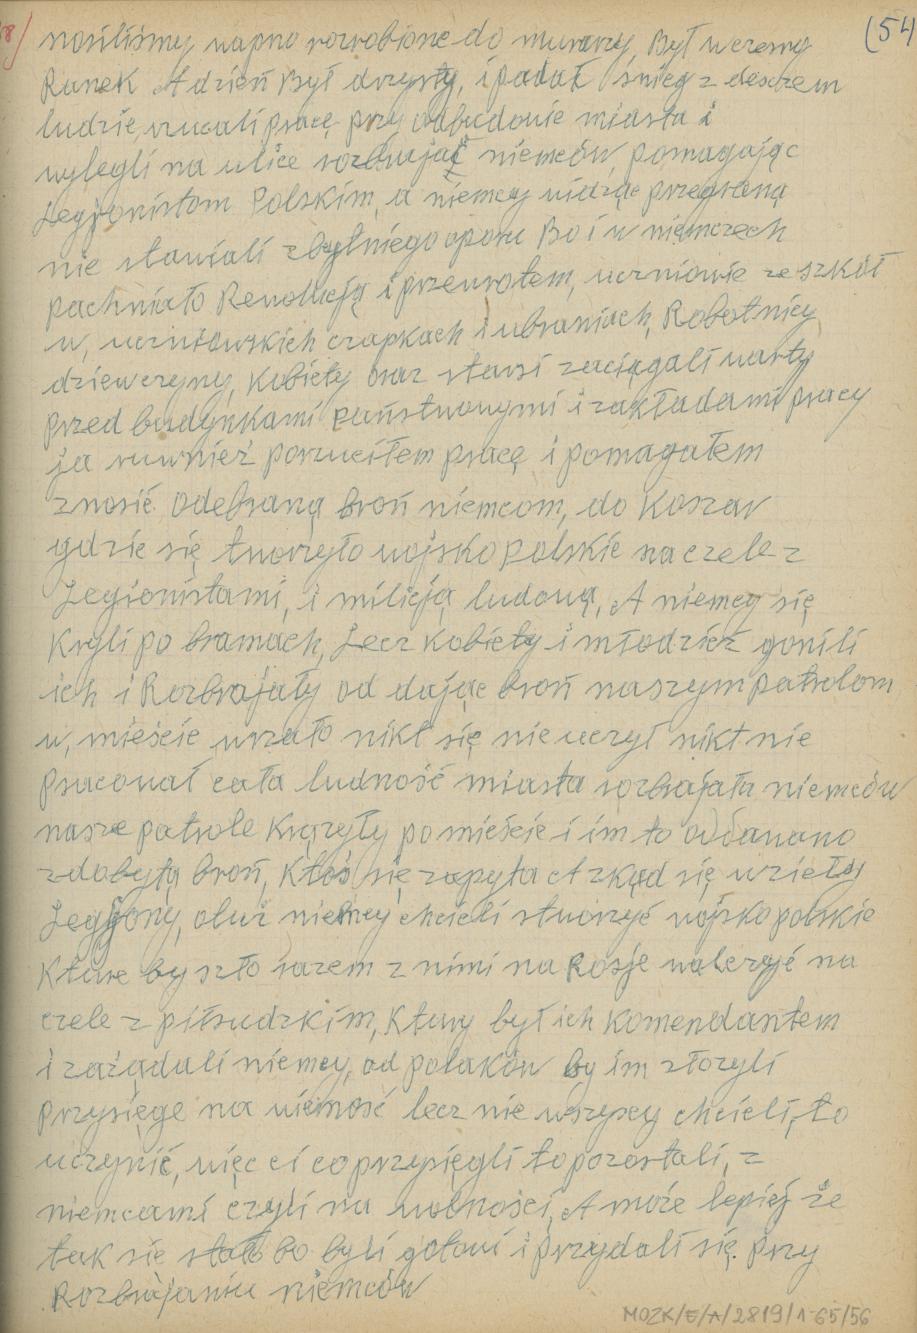 8/ (54)
nosiliśmy wapno rozrobione do murarzy, Był wczesny
Ranek A dzień Był drzysty, i padał śnieg z deszczem
ludzie, rzucali pracę przy odbudowie miasta i
wylegli na ulice rozbrajać niemców, pomagając
Legjonistom Polskim, a niemcy widząc przegraną
nie stawiali zbytniego oporu Bo i w niemczech
pachniało Rewolucją i przewrotem, uczniowie ze szkół
w, uczniowskich czapkach i ubraniach, Robotnicy
dziewczyny, kobiety oraz starsi zaciągali warty
przed budynkami państwowymi i zakładami pracy
ja ruwnież porzuciłem pracę i pomagałem
znosić odebraną broń niemcom, do Koszar
gdzie się tworzyło wojsko polskie na czele z
Legionistami, i milicją ludową, A niemcy się
Kryli po bramach, Lecz kobiety i młodzież gonili
ich i Rozbrajały od dając broń naszym patrolom
w, mieście wrzało nikt się nie uczył nikt nie
pracował cała ludność miasta rozbrajała niemców
nasze patrole krążyły po mieście i im to oddawano
zdobytą broń, Ktoś się zapyta A zkąd się wzieły
Legjony, otuż niemcy chcieli stworzyć wojsko polskie
Kture by szło razem z nimi na Rosje walczyć na
czele z piłsudzkim, Ktury był ich komendantem
i zażądali niemcy, od polaków by im złorzyli
przysięge na wierność lecz nie wszyscy chcieli, to
uczynić, więc ci co przysięgli to pozostali, z
niemcami czyli na wolności, A może lepiej że
tak się stało bo byli gotowi i przydali się przy
Rozbrajaniu niemców
MOZK/E/A/2819/1-65/56